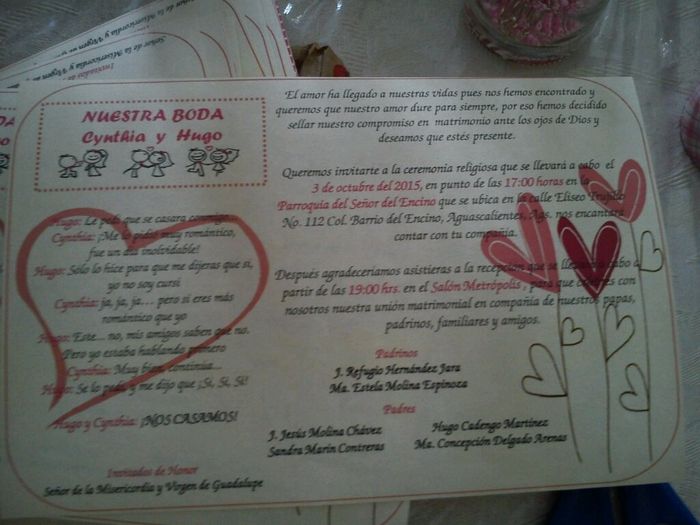 NUESTRA BODA
Cynthia y Hugo
Hugo: Le pedí que se casara conmigo
Cynthia: ¡Me lo pidió muy romántico,
fue un día inolvidable!
Hugo: Sólo lo hice para que me dijeras que si,
yo no soy cursi
Cynthia: ja, ja, ja... pero si eres más
romántico que yo
Hugo: Este... no, mis amigos saben que no.
Pero yo estaba hablando primero
Cynthia: Muy bien, continúa...
Hugo: Se lo pedí y me dijo que ¡Si, Si, Si!
Hugo y Cynthia: ¡NOS CASAMOS!
Invitados de Honor
Señor de la Misericordia y Virgen de Guadalupe
El amor ha llegado a nuestras vidas pues nos hemos encontrado y
queremos que nuestro amor dure para siempre, por eso hemos decidido
sellar nuestro compromiso en matrimonio ante los ojos de Dios y
deseamos que estés presente.
Queremos invitarte a la ceremonia religiosa que se llevará a cabo el
3 de octubre del 2015, en punto de las 17:00 horas en la
Parroquia del Señor del Encino que se ubica en la calle Eliseo Trujillo
No. 112 Col. Barrio del Encino, Aguascalientes, Ags. nos encantará
contar con tu compañía.
Después agradeceríamos asistieras a la recepción que se llevará a cabo a
partir de las 19:00 hrs. en el Salón Metrópolis, para que con
nosotros nuestra unión matrimonial en compañía de nuestros papas,
padrinos, familiares y amigos.
Padrinos
J. Refugio Hernández Jara
Ma. Estela Molina Espinoza
Padres
J. Jesús Molina Chávez
Sandra Marin Contreras
Hugo Cadengo Martínez
Ma. Concepción Delgado Arenas